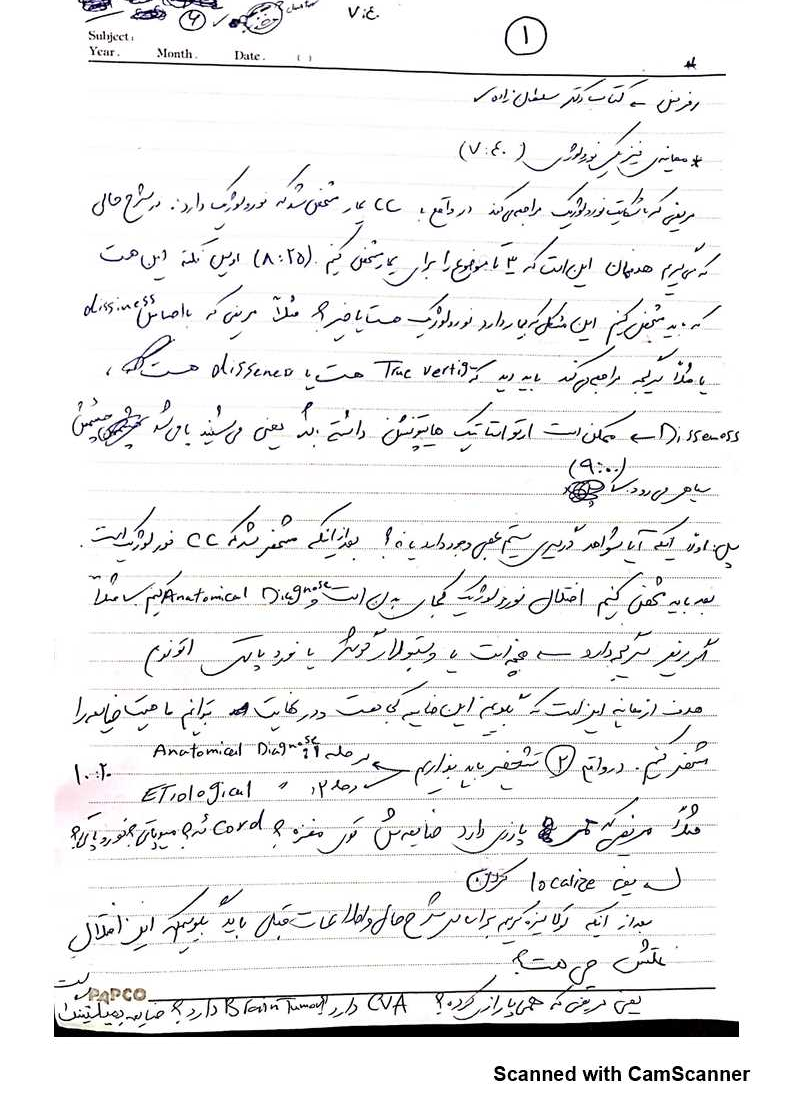 ۷:۴۰
①
Subject:
Year. Month. Date. ( )
رفرنس → کتاب دکتر سلطان زاده ✓
* معاینه‌ی فیزیکی نورولوژی (۷:۴۰)
مریضی که با شکایت نورولوژیک مراجعه می‌کند در واقع با CC بیمار مشخص شد که نورولوژیک دارد. در شرح حالی
که می‌گیریم هدفمان این است که ۳ تا موضوع را برای بیمار مشخص کنیم. (۸:۲۵) اولین نکته این هست
که باید مشخص کنیم این مشکل که بیمار دارد نورولوژیک هست یا خیر؟ مثلاً مریضی که با احساس dissiness
یا مثلاً سرگیجه مراجعه می‌کند باید دید که True vertigo هست یا disseness هست،
Disseness ← ممکن است ارتواستاتیک هایپوتنشن داشته باشد یعنی می‌شیند پا می‌شود چشمش
سیاهی می‌رود. (۹:۰۰)
پس: اولاً اینکه آیا شواهد درگیری سیستم عصبی وجود دارد یا نه؟ بعد از اینکه مشخص شد که CC نورولوژیک است.
بعد باید مشخص کنیم اختلال نورولوژیک کجای بدن است و Anatomical Diagnose کنیم. مثلاً
اگر مریض سرگیجه دارد → مخچه است یا وستیبولار یا نوروپاتی اتونوم
هدف از معاینه این است که بگوییم این ضایعه کجا هست و در نهایت بتوانیم ماهیت ضایعه را
مشخص کنیم. در واقع ② تشخیص باید بذاریم ← مرحله ۱: Anatomical Diagnose
مرحله ۲: Etiological " ۱۰:۲۰
مثلاً مریضی که همی پارزی دارد ضایعه‌ش توی مغزه؟ Cord ئه؟ میوپاتی؟ نوروپاتی؟
یعنی localize کردن
بعد از اینکه لوکالیزه کردیم براساس شرح حال و اطلاعات قبلی باید بگوییم که این اختلال
علتش چی هست؟
یعنی مریضی که همی پارزی کرده؟ CVA دارد؟ Brain Tumor دارد؟ ضایعه دمیلینیتینگ است
PAPCO
Scanned with CamScanner